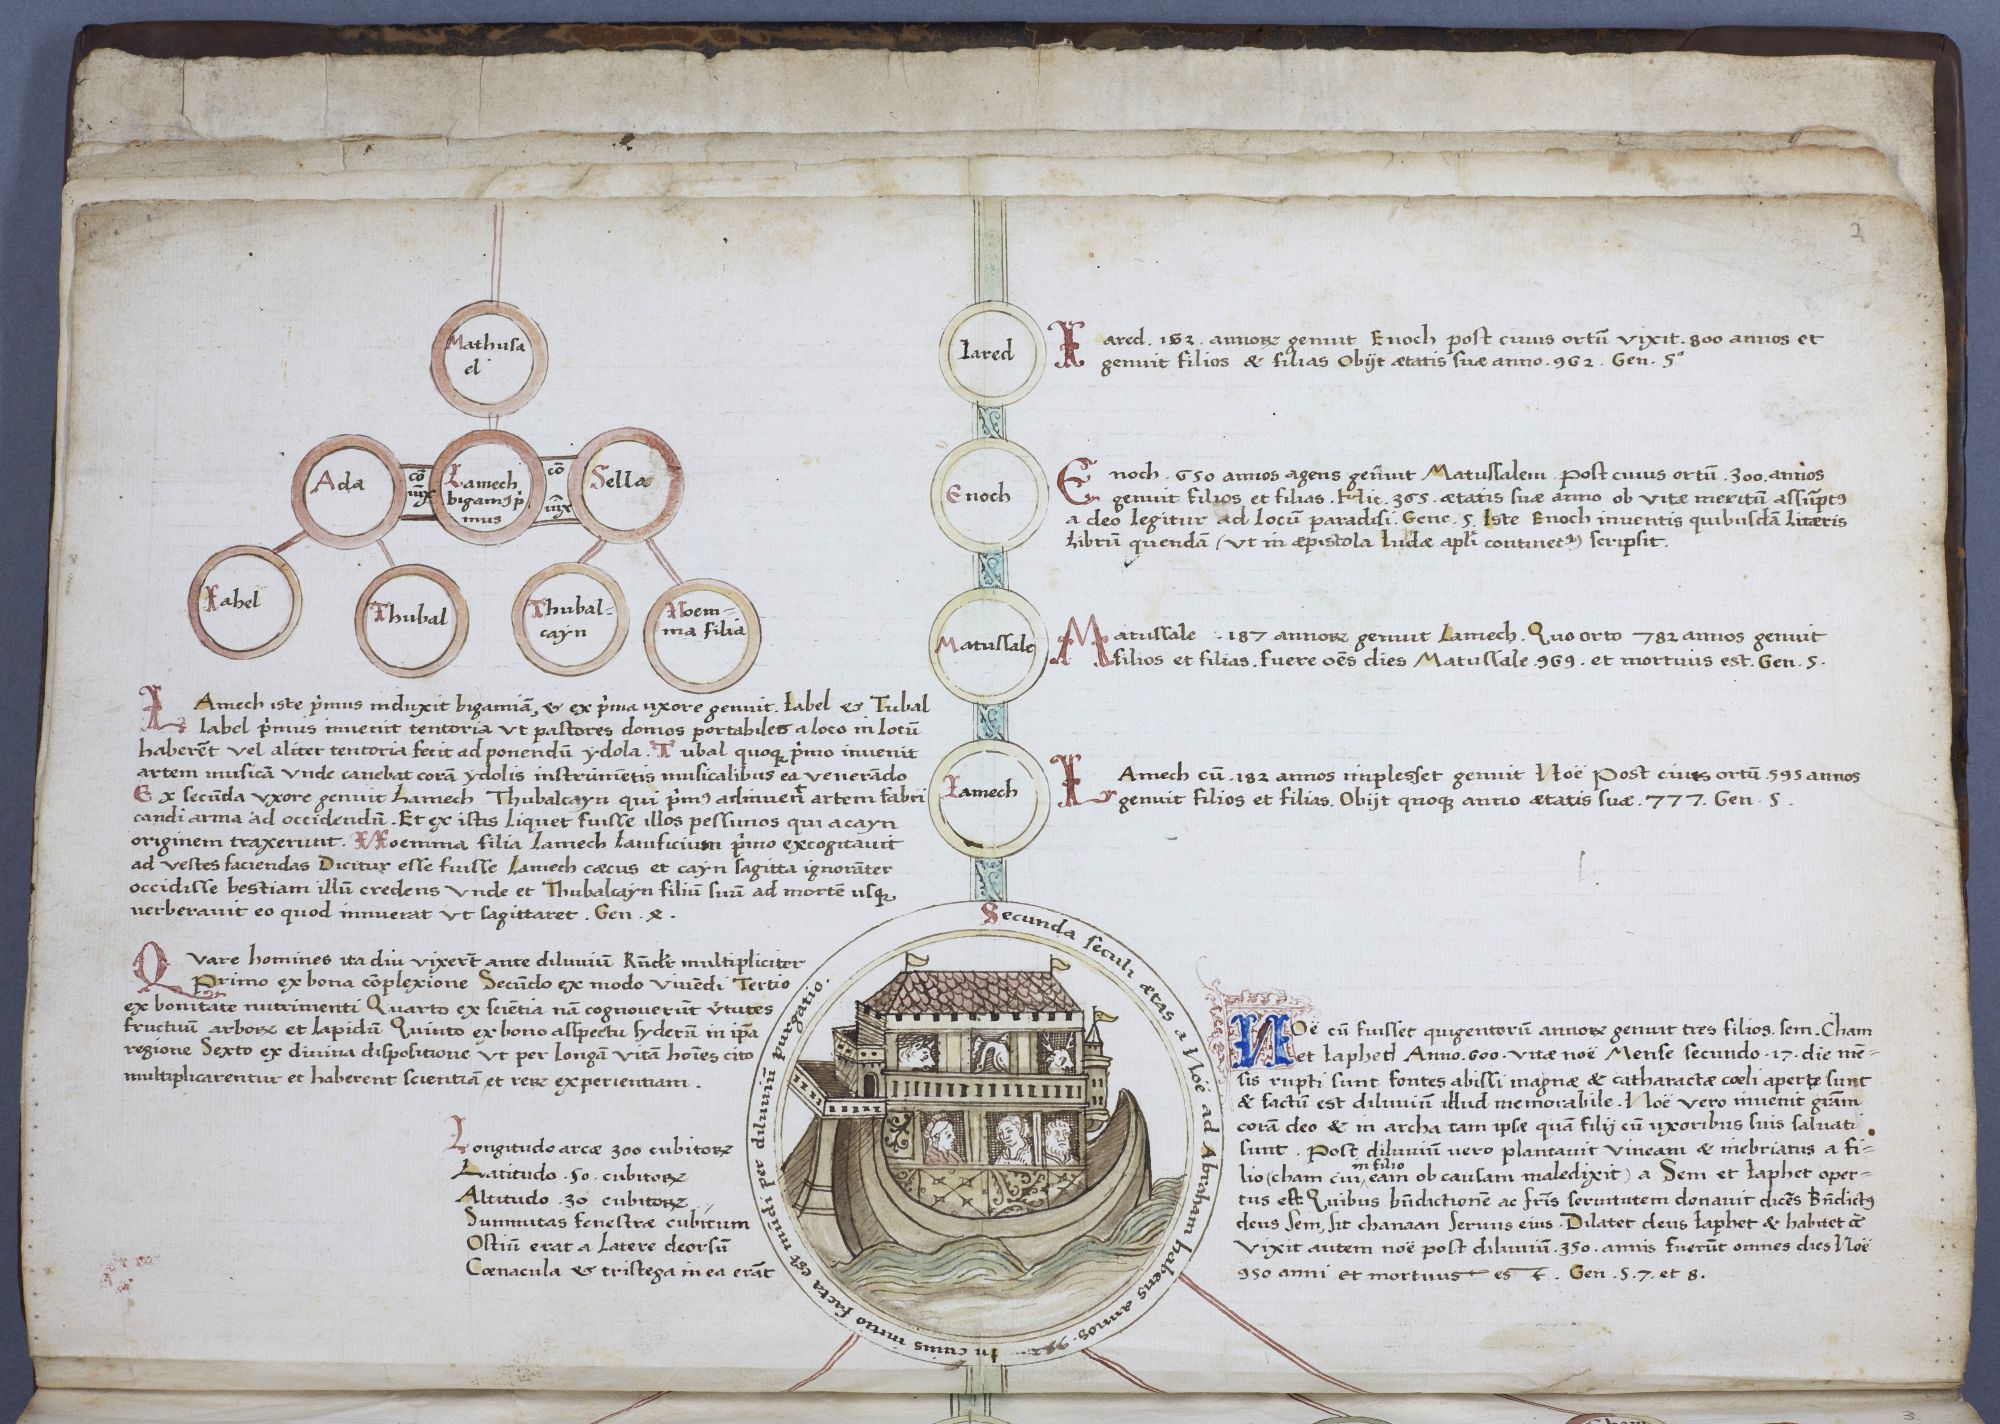 2
Mathusa
el
Ada
cō
iūx
Lamech
bigamꝰ p̄
mus
cō
iūx
Sella
Iabel
Thubal
Thubal-
cayn
Noem=
ma filia
LAmech iste p̄mus induxit bigamiā, & ex p̄ma uxore genuit. Iabel & Tubal
Iabel p̄mus invenit tentoria vt pastores domos portabiles a loco in locū
haberēt vel aliter tentoria fecit ad ponendū ydola. Tubal quoqꝫ p̄mo invenit
artem musicā vnde canebat corā ydolis instrumētis musicalibus ea venerādo
Ex secūda vxore genuit Lamech Thubalcayn qui p̄mꝰ adinvenit artem fabri
candi arma ad occidendū. Et ex istis liquet fuisse illos pessimos qui a cayn
originem traxerunt. Noemma filia Lamech Lanificium p̄mo excogitavit
ad vestes faciendas Dicitur esse fuisse Lamech cæcus et cayn sagitta ignorāter
occidisse bestiam illū credens vnde et Thubalcayn filiū suū ad mortē usqꝫ
verberavit eo quod innuerat vt sagittaret. Gen. 4.
Qvare homines ita diu vixerūt ante diluviū Rn̄detꝛ multipliciter
Primo ex bona cōplexione Secūdo ex modo vivēdi Tertio
ex bonitate nutrimenti Quarto ex sciētia nā cognoverūt v̄tutes
fructuū arboꝝ et lapidū Quinto ex bono asspectu syderū in ip̄a
regione Sexto ex divina dispositione vt per longā vitā hoīes cito
multiplicarentur et haberent scientiā et reꝝ experientiam.
Longitudo arcæ 300 cubitoꝝ
Latitudo .50. cubitoꝝ
Altitudo .30 cubitoꝝ
Summitas fenestræ cubitum
Ostiū erat a latere deorsū
Cœnacula & tristega in ea erāt
Iared
Iared. 162. annoꝝ genuit Enoch post cuius ortū vixit. 800 annos et
genuit filios & filias Obijt ætatis suæ anno. 962. Gen. 5°
Enoch
Enoch. 650 annos agens genuit Matussalem post cuius ortū. 300. annos
genuit filios et filias. 365. ætatis suæ anno ob vitæ meritū assūptꝰ
a deo legitur ad locū paradisi. Gene. 5. Iste Enoch inventis quibusdā litæris
librū quendā (vt in æpistola Iudæ apl̄i continetꝛ) scripsit.
Matussale
Matussale . 187 annoꝝ genuit Lamech. Quo orto 782 annos genuit
filios et filias. fuere oēs dies Matussale 969. et mortuus est. Gen. 5.
Lamech
LAmech cū .182 annos implesset genuit Noë Post cuius ortū 595 annos
genuit filios et filias. Obijt quoqꝫ anno ætatis suæ. 777. Gen. 5.
Secunda seculi ætas a Noë ad Abraham habens annos. In cuius initio facta est mūdi per diluuiū purgatio.
Noë cū fuisset quigentorū annoꝝ genuit tres filios. sem. Cham
et Iapheth Anno .600. vitæ noë Mense secundo .17. die mē=
sis rupti sunt fontes abissi magnæ & catharactæ cœli apertæ sunt
& factū est diluviū illud memorabile. Noë vero invenit grām
corā deo & in archa tam ipse quā filij cū vxoribus suis salvati
sunt. Post diluviū vero plantavit vineam & inebriatus a fi-
lio (cham cui in filio eam ob causam maledixit) a Sem et Iaphet oper-
tus est Quibus bn̄dictionē ac fr̄is servitutem donavit dicēs Bn̄dictꝰ
deus Sem, sit chanaan servus eius. Dilatet deus Iaphet & habitet &c̄
Vixit autem noë post diluviū .350. annis fuerūt omnes dies Noë
950 anni et mortuus est. Gen. 5. 7. et 8.
3